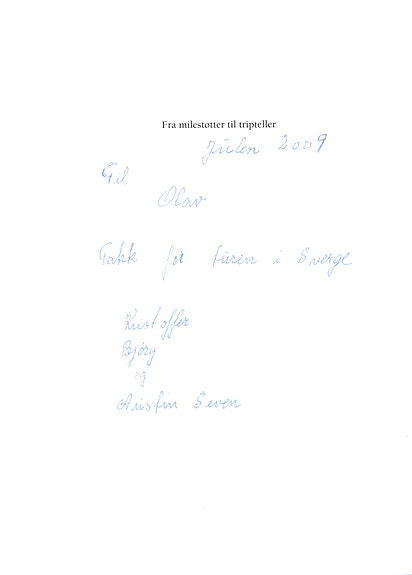 Fra milestøtter til tripteller
Julen 2009
Til
Olav
Takk før turen i Sverge
Kristoffer
Bjørg
og
Even